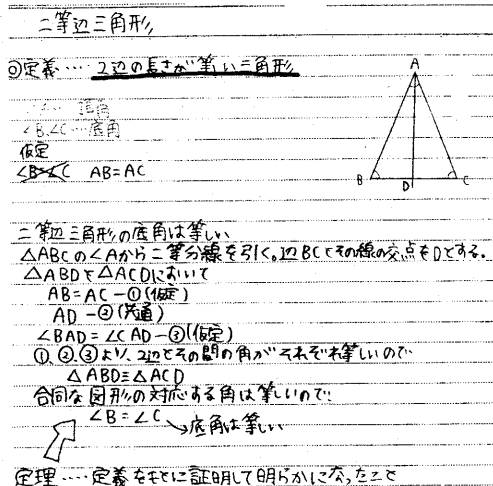 二等辺三角形
◎定義‥‥2辺の長さが等しい三角形
頂角
∠B,∠C‥‥底角
仮定
∠B=∠C AB=AC
A
B D C
二等辺三角形の底角は等しい
△ABCの∠Aから二等分線を引く。辺BCとその線の交点をDとする。
△ABDと△ACDにおいて
AB=AC-①(仮定)
AD -②(共通)
∠BAD=∠CAD-③(仮定)
①,②,③より、2辺とその間の角がそれぞれ等しいので
△ABD≡△ACD
合同な図形の対応する角は等しいので
∠B=∠C
底角は等しい
定理‥‥定義をもとに証明して明らかになったこと